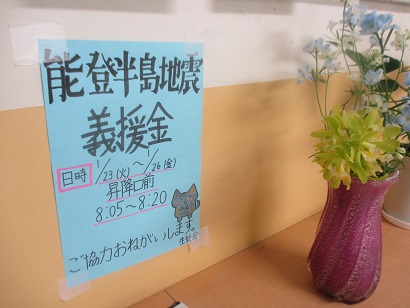 能登半島地震
義援金
日時 1/23(火)～1/26(金)
昇降口前
8:05～8:20
ご協力おねがいします。
生徒会